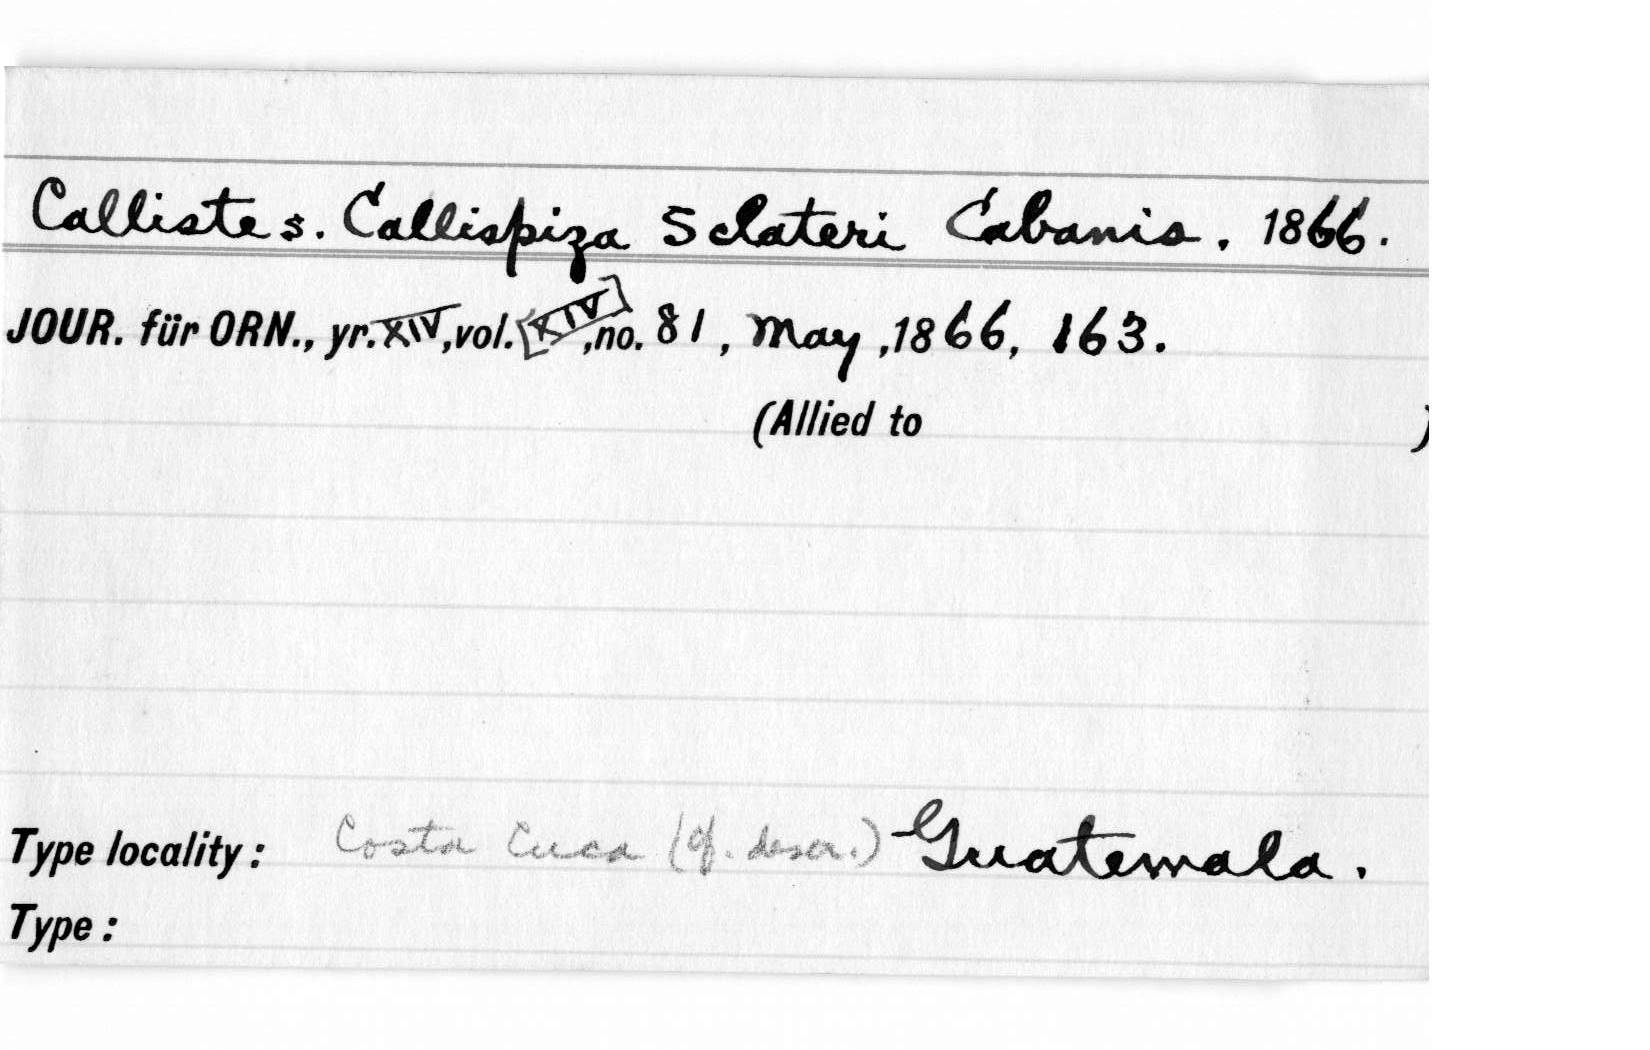 Calliste s. Callispiza Sclateri Cabanis. 1866.
JOUR. für ORN., yr. XIV, vol. [XIV], no. 81, May, 1866, 163.
(Allied to )
Type locality: Costa Cuca (cf. descr.) Guatemala.
Type: